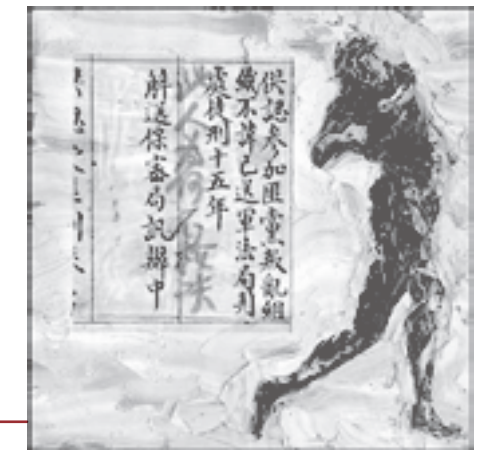 供認參加匪黨叛亂組
織不諱已送軍法局判
處徒刑十五年
人為何不
解送保密局訊辦中